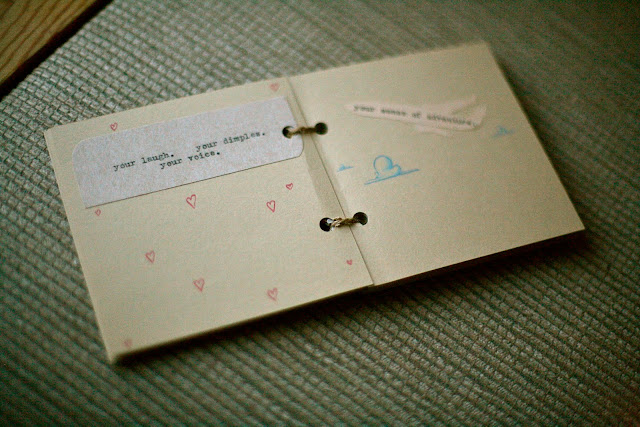 your laugh. your dimples.
your voice.
your sense of adventure.